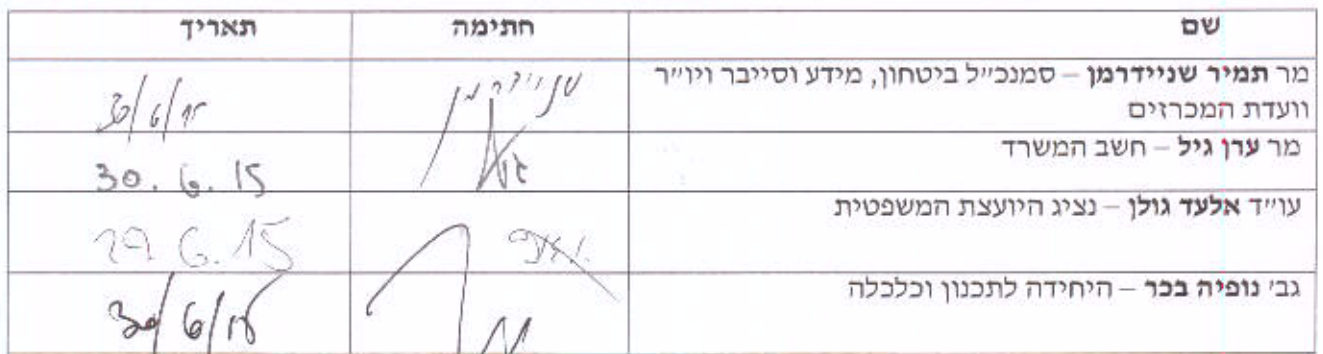 שם חתימה תאריך
מר תמיר שניידרמן – סמנכ״ל ביטחון, מידע וסייבר ויו״ר
וועדת המכרזים
שניידרמן 30/6/15
מר ערן גיל – חשב המשרד 30.6.15
עו״ד אלעד גולן – נציג היועצת המשפטית 29.6.15
גב׳ נופיה בכר – היחידה לתכנון וכלכלה 30/6/15